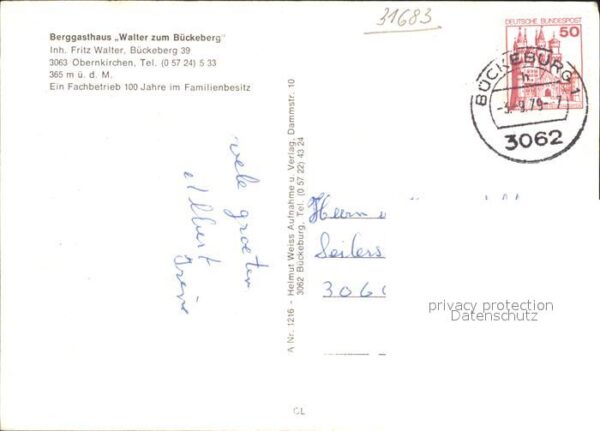 31683
Berggasthaus „Walter zum Bückeberg"
Inh. Fritz Walter, Bückeberg 39
3063 Obernkirchen, Tel. (0 57 24) 5 33
365 m ü. d. M.
Ein Fachbetrieb 100 Jahre im Familienbesitz
DEUTSCHE BUNDESPOST
50
BÜCKEBURG 1
h
-3.-9.79-7
3062
vele groeten
Albert
Irène
A Nr. 1216 - Helmut Weiss Aufnahme u. Verlag, Dammstr. 10
3062 Bückeburg, Tel. (0 57 22) 43 24
Herrn
Seilers
306
privacy protection
Datenschutz
CL